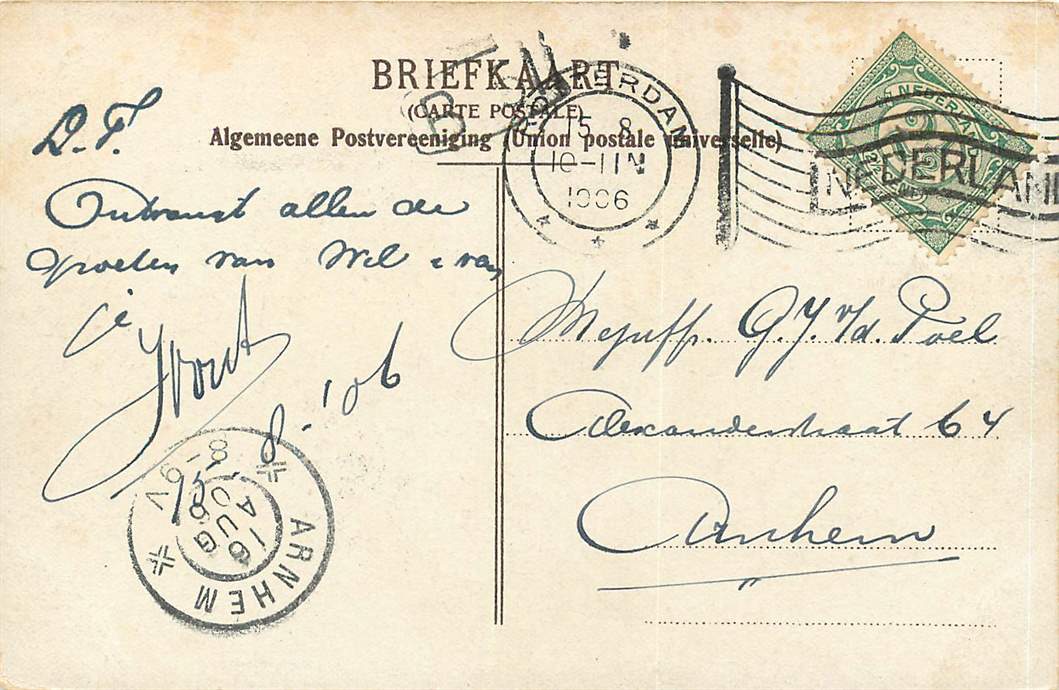 BRIEFKAART
(CARTE POSTALE)
Algemeene Postvereeniging (Union postale universelle)
ROTTERDAM
15 8
10-11 N
1906
NEDERLAND
NEDERLAND
L.T.
Ontvangt allen de
groeten van Wil & van
je
15.8.'06
Mejuffr. G.J. v/d. Poel
Alexanderstraat 64
Arnhem
ARNHEM
16 AUG 06
8-9V